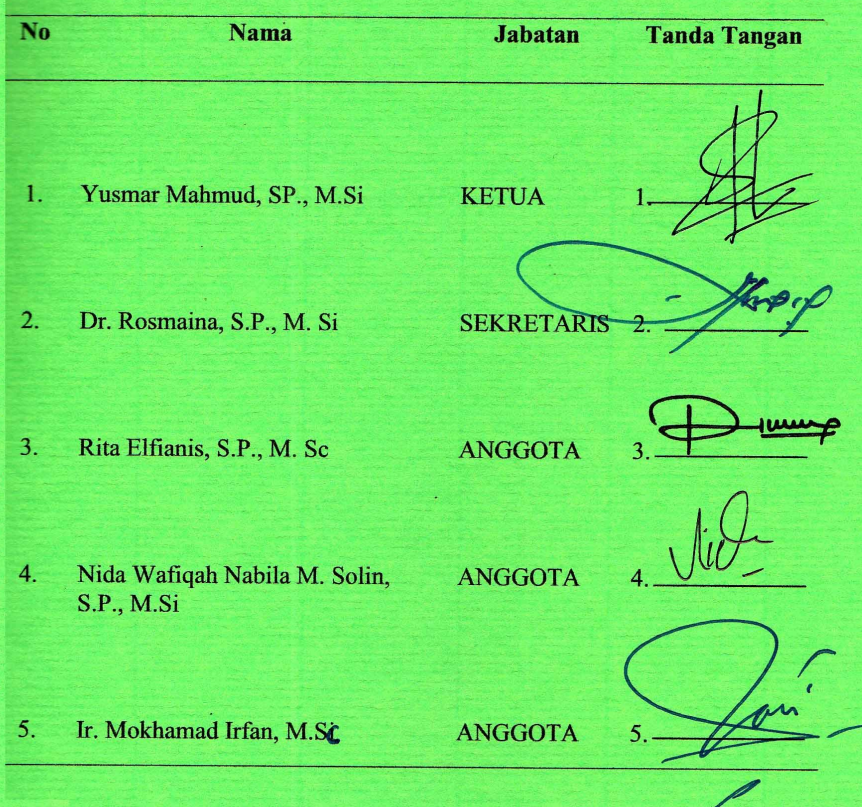 No Nama Jabatan Tanda Tangan
1. Yusmar Mahmud, SP., M.Si KETUA 1.
2. Dr. Rosmaina, S.P., M. Si SEKRETARIS 2.
3. Rita Elfianis, S.P., M. Sc ANGGOTA 3.
4. Nida Wafiqah Nabila M. Solin, ANGGOTA 4.
S.P., M.Si
5. Ir. Mokhamad Irfan, M.Sc ANGGOTA 5.